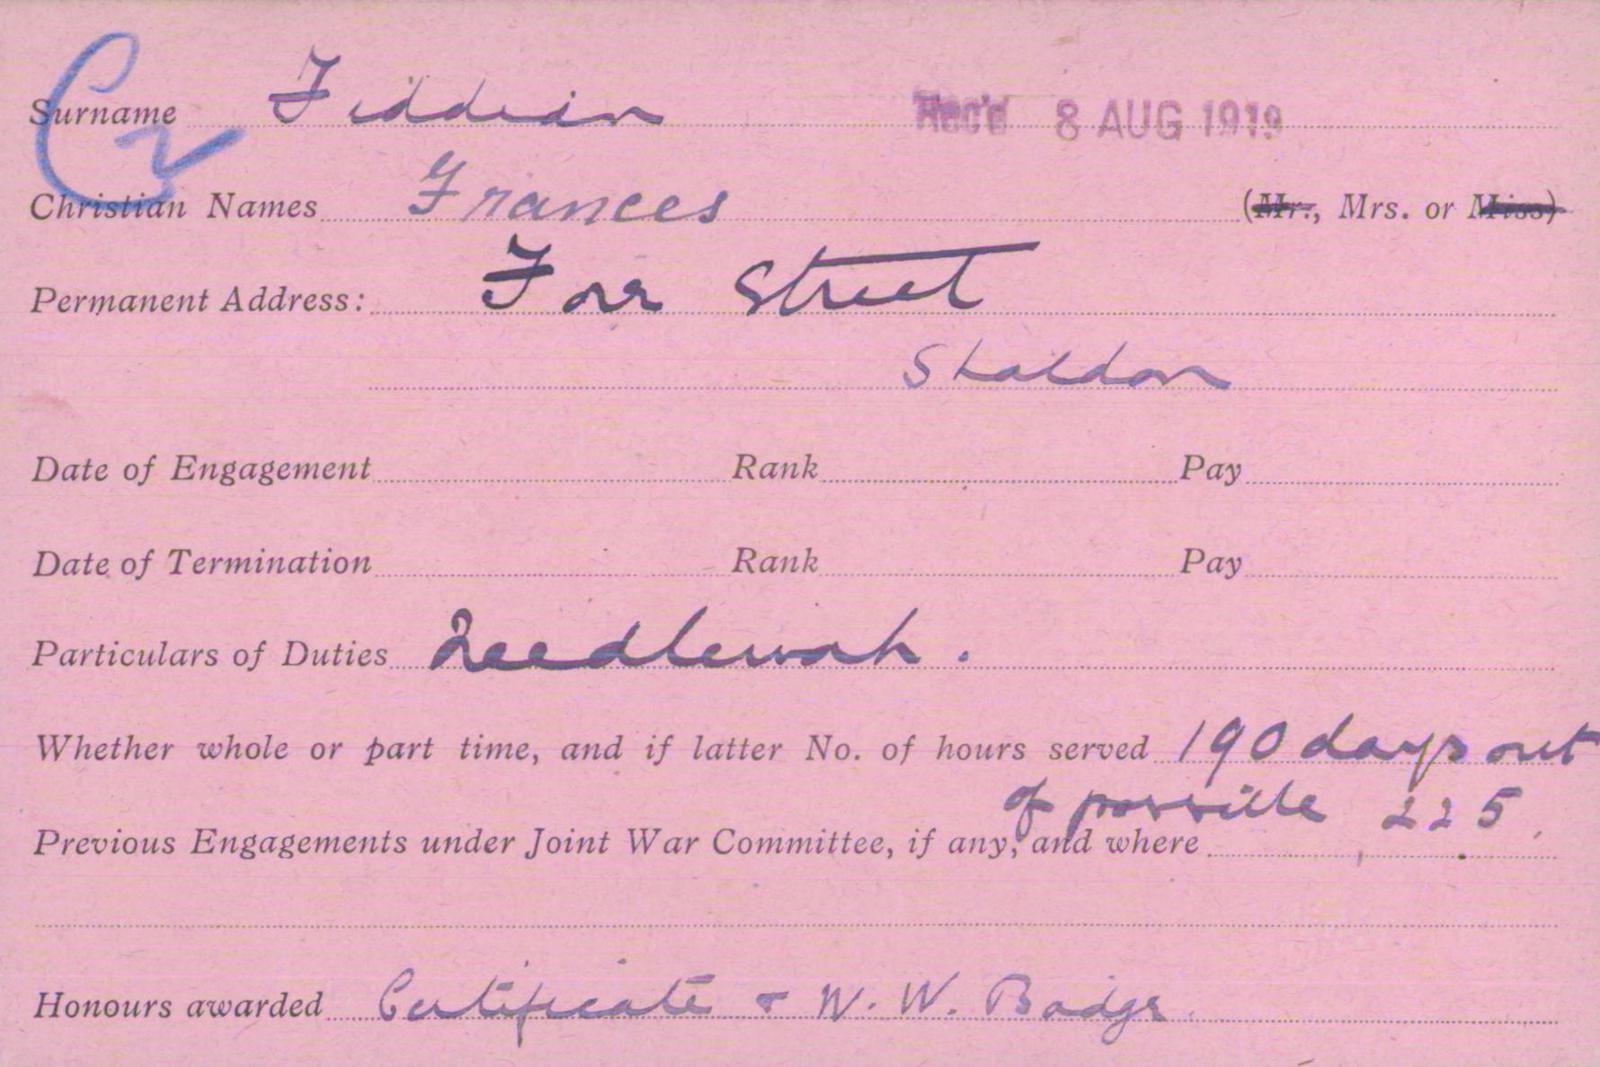 C2
Surname Fiddian Rec'd 8 AUG 1919
Christian Names Frances (Mr., Mrs. or Miss)
Permanent Address: Fore Street
Shaldon
Date of Engagement Rank Pay
Date of Termination Rank Pay
Particulars of Duties Needlework.
Whether whole or part time, and if latter No. of hours served 190 days out
of possible 225.
Previous Engagements under Joint War Committee, if any, and where
Honours awarded Certificate & W. W. Badge.